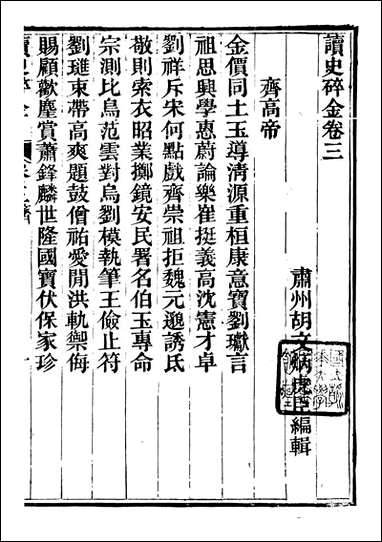 讀史碎金卷三
肅州胡文炳虎臣編輯
齊高帝
金價同土玉導淸源重桓康意寶劉瓛言
祖思興學惠蔚論樂崔挺義高沈憲才卓
劉祥斥宋何點戲齊崇祖拒魏元邈誘氐
敬則索衣昭業擲鏡安民署名伯玉專命
宗測比鳥范雲對烏劉模執筆王儉止符
劉璡束帶高爽題鼓僧祐愛閒洪軌禦侮
賜顧歡麈賞蕭鋒麟世隆國寶伏保家珍